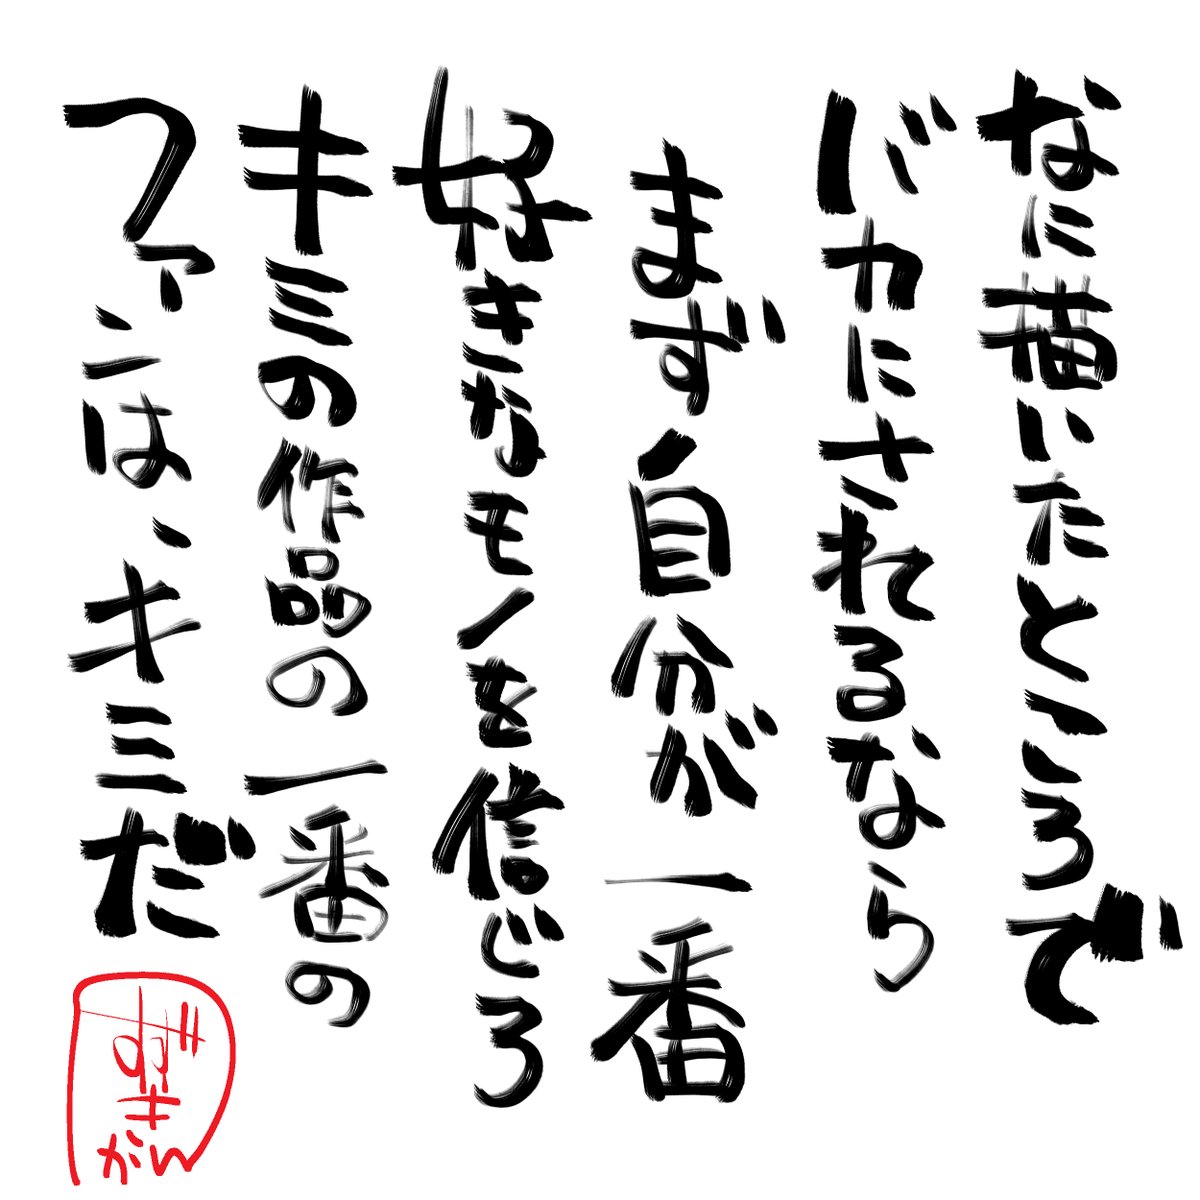 なに描いたところで
バカにされるなら
まず自分が一番
好きなモノを信じろ
キミの作品の一番の
ファンは、キミだ
ずきがん